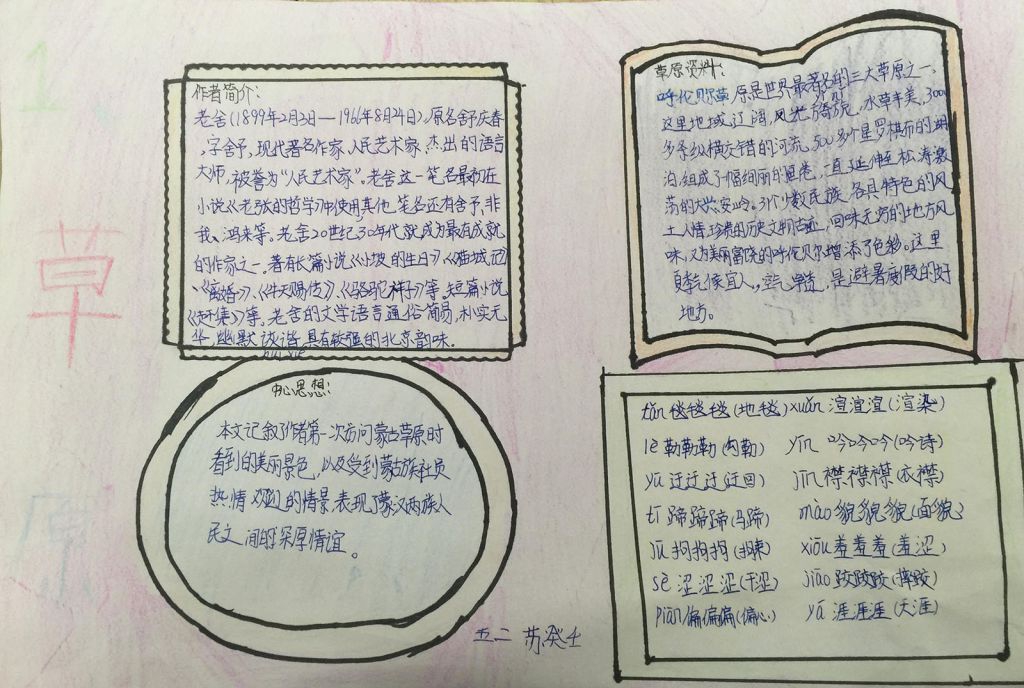 1
草
原
作者简介:
老舍(1899年2月3日—1966年8月24日),原名舒庆春
,字舍予,现代著名作家、人民艺术家、杰出的语言
大师,被誉为"人民艺术家"。老舍这一笔名最初在
小说《老张的哲学》中使用其他笔名还有舍予、非
我、鸿来等。老舍20世纪30年代就成为最有成就
的作家之一。著有长篇小说《小坡的生日》、《猫城记》
、《离婚》、《牛天赐传》、《骆驼祥子》等。短篇小说
《赶集》等。老舍的文学语言通俗简易,朴实无
华,幽默诙谐,具有较强的北京韵味。
huī xié
草原资料:
呼伦贝尔草原是世界最著名的三大草原之一,
这里地域辽阔,风光旖旎,水草丰美,3000
多条纵横交错的河流,500多个星罗棋布的湖
泊,组成了一幅绚丽的画卷,一直延伸至松涛激
荡的大兴安岭。31个少数民族各具特色的风
土人情,珍贵的历史文物古迹,回味无穷的地方风
味,又为美丽富饶的呼伦贝尔增添了色彩。这里
夏季气候宜人,空气,是避暑度假的好
地方。
中心思想:
本文记叙了作者第一次访问蒙古草原时
看到的美丽景色,以及受到蒙古族社员
热情欢迎的情景表现了蒙汉两族人
民之间的深厚情谊。
tǎn 毯毯毯(地毯) xuàn 渲渲渲(渲染)
lè 勒勒勒(勾勒) yín 吟吟吟(吟诗)
yū 迂迂迂(迂回) jīn 襟襟襟(衣襟)
tí 蹄蹄蹄(马蹄) mào 貌貌貌(面貌)
jū 拘拘拘(拘束) xiōu 羞羞羞(羞涩)
sè 涩涩涩(干涩) jiāo 跤跤跤(摔跤)
piān 偏偏偏(偏心) yá 涯涯涯(天涯)
五二 苏